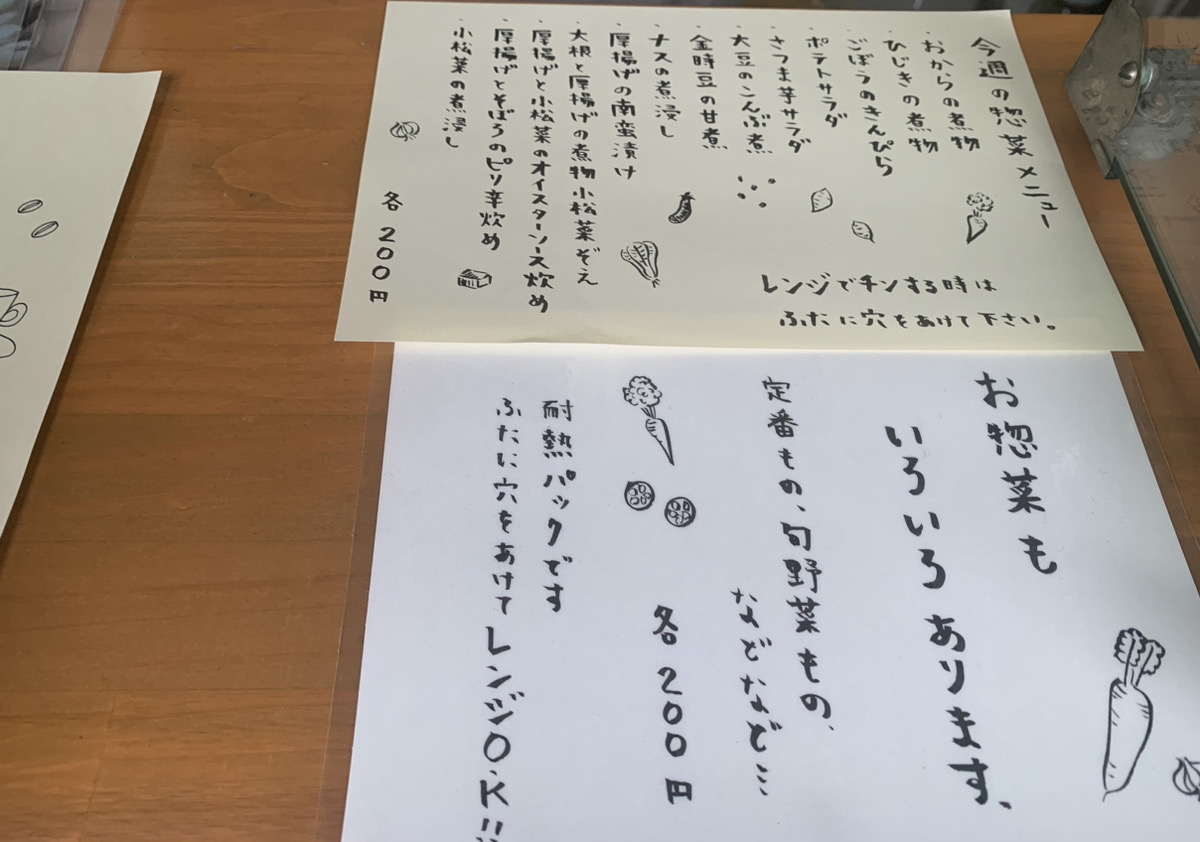 今週の惣菜メニュー
・おからの煮物
・ひじきの煮物
・ごぼうのきんぴら
・ポテトサラダ
・さつま芋サラダ
・大豆のこんぶ煮
・金時豆の甘煮
・ナスの煮浸し
・厚揚げの南蛮漬け
・大根と厚揚げの煮物小松菜ぞえ
・厚揚げと小松菜のオイスターソース炒め
・厚揚げとそぼろのピリ辛炒め
・小松菜の煮浸し
各200円
レンジでチンする時は
ふたに穴をあけて下さい。
お惣菜も
いろいろあります、
定番もの、旬野菜もの、
などなど…
各200円
耐熱パックです
ふたに穴をあけてレンジO.K!!